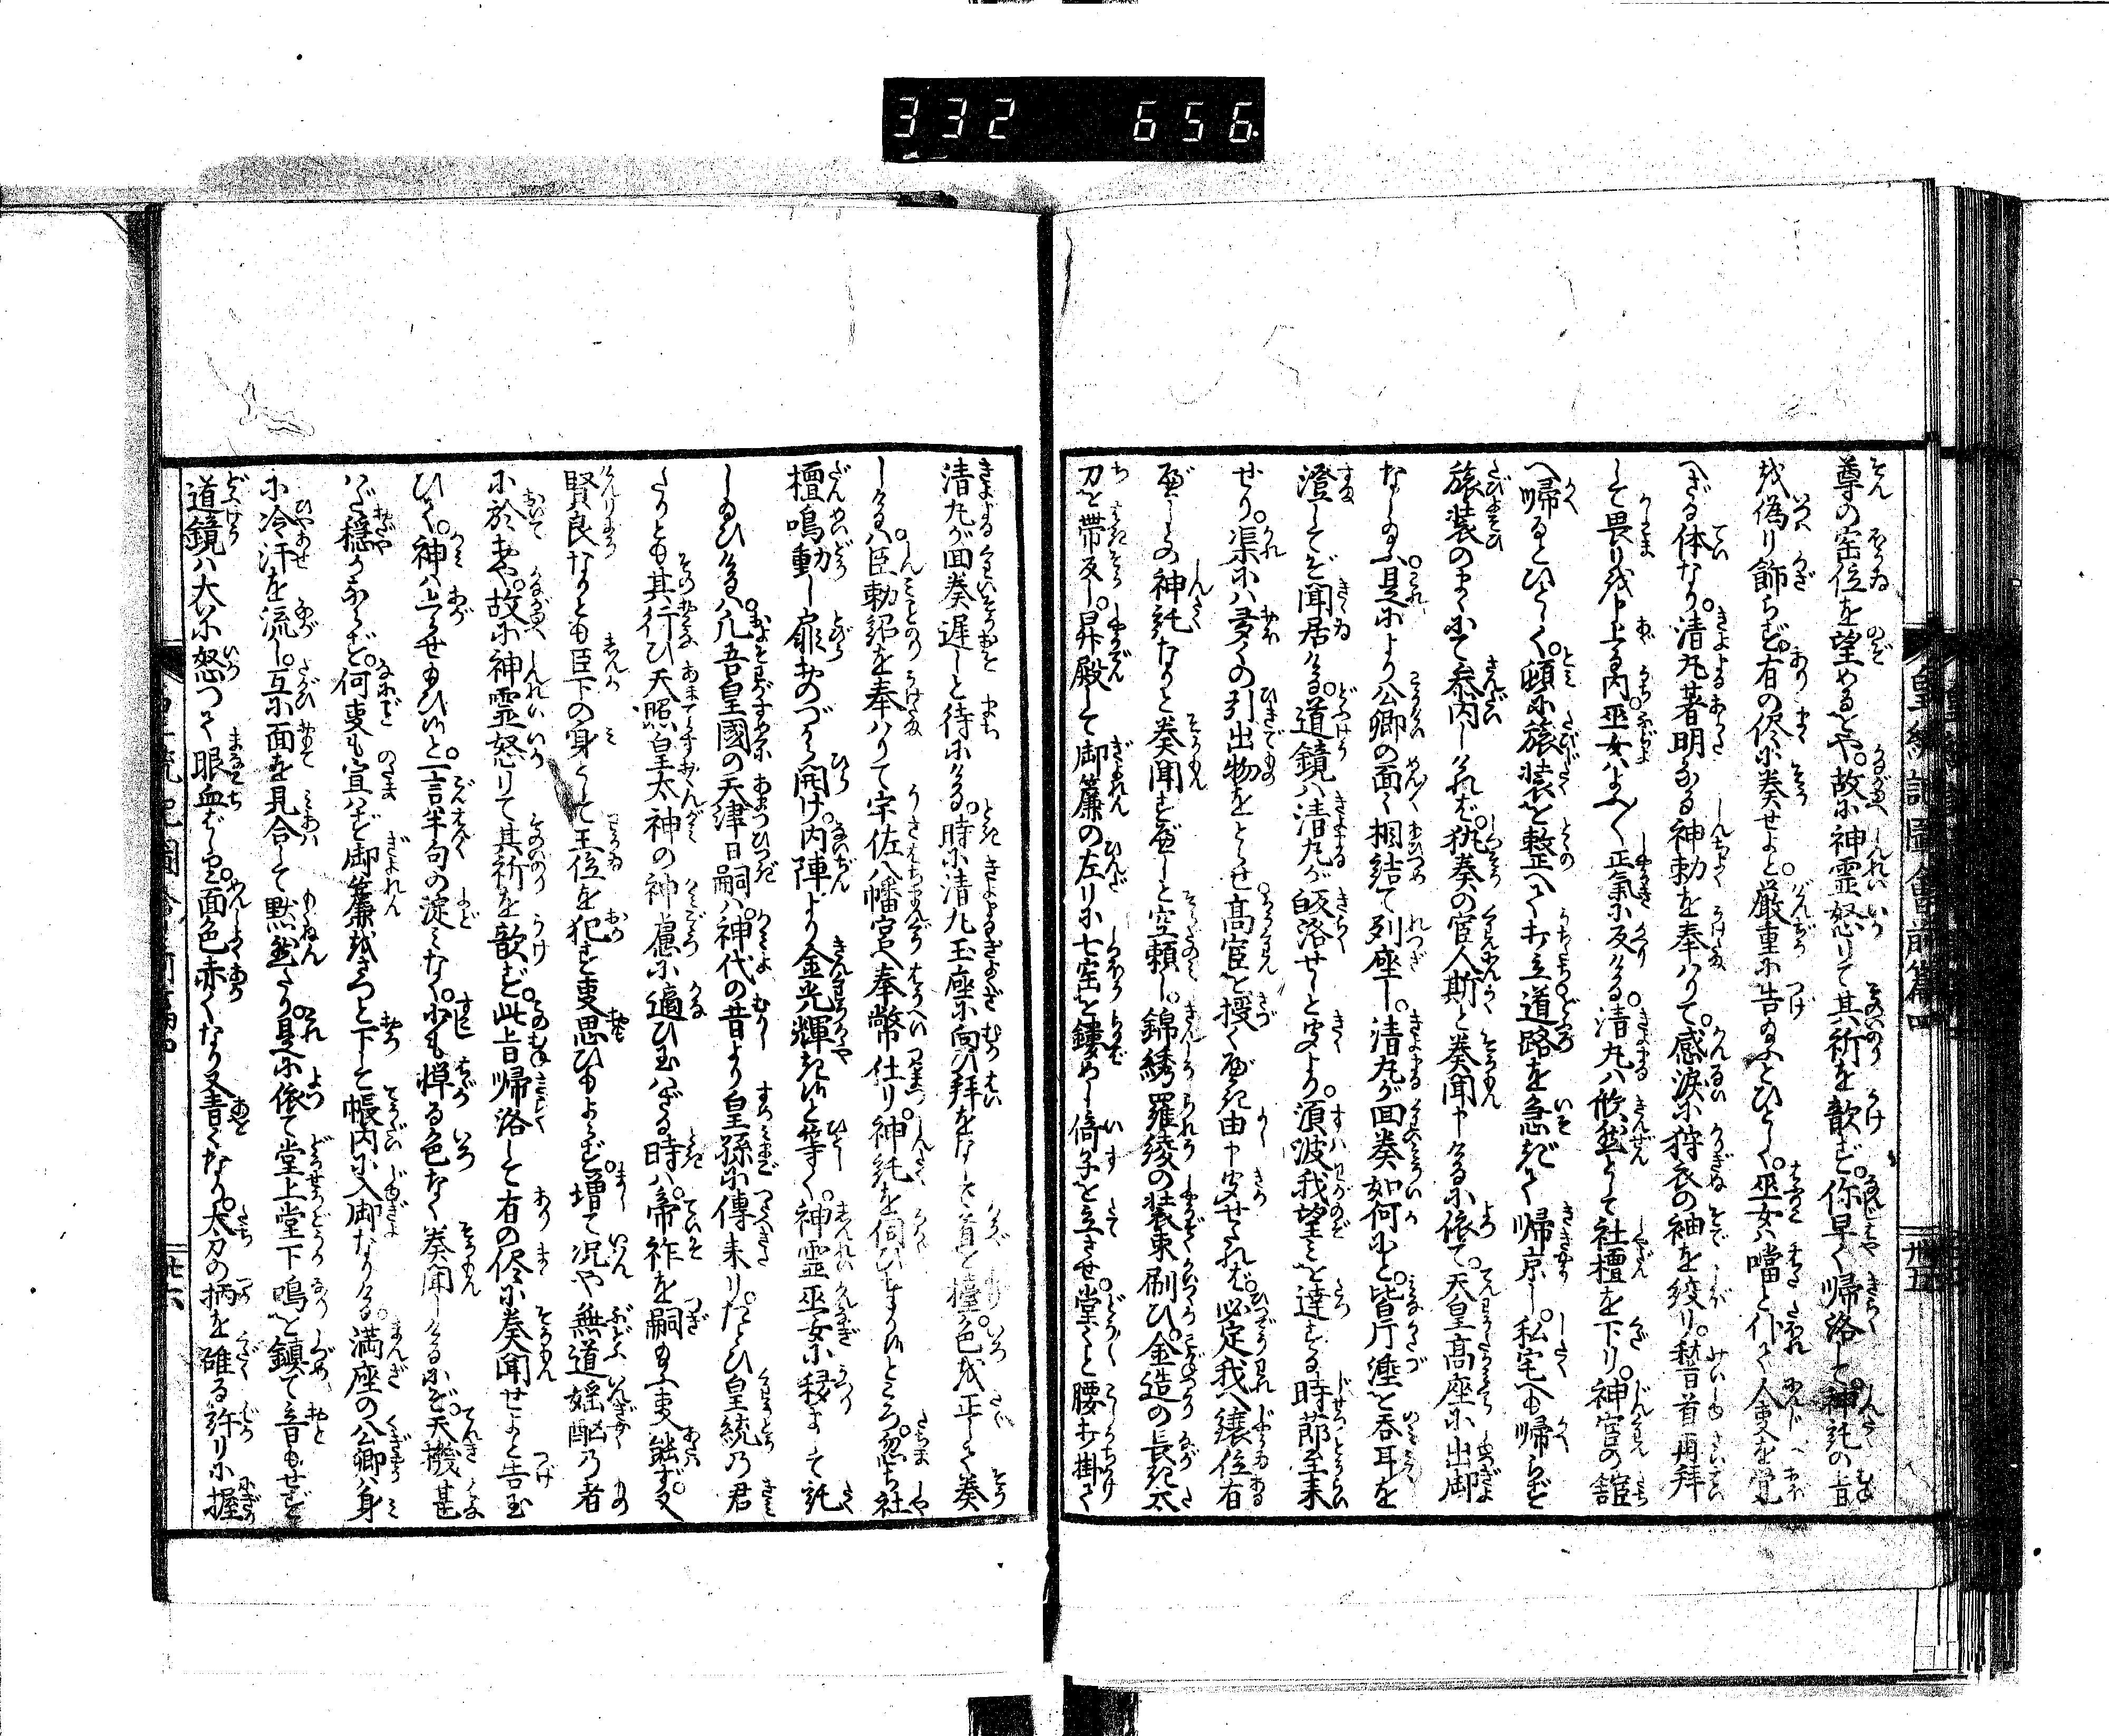 332 656
尊の宝位を望めるをや。故に神霊怒りて其祈を歆ず。你早く帰洛して神託の旨
を偽り飾らず。有の侭に奏せよと。厳重に告給ふとひとしく。巫女は噹と仆て人事を覚
へざる体なり。清丸著明なる神勅を奉はりて。感涙に狩衣の袖を絞り。稽首再拝
して畏り

を申上る内。巫女はよみ〳〵正氣に反ける。清丸は欣然として社檀を下り。神官の舘
へ帰るとひとしく。頓に旅装を整へて打立道路を急ぎて帰京し。私宅へも帰らず
旅装のまゝにて参内しければ。執奏の官人斯と奏聞申けるに依て。天皇高座に出御
なし給ふ。是により公卿の面々相結て列座し。清丸が回奏如何にと。皆片唾を呑耳を
澄してぞ聞居ける。道鏡は清丸が皈洛せしと聞より。須波我望を達する時節至来
せり。渠には多くの引出物をとらせ。高官を授くべき由申聞せたれば。必定我へ譲位有
べしとの神託なりと奏聞すべしと空頼し。錦綉羅綾の装束刷ひ。金造の長き太
刀を帯反し。昇殿して御簾の左りに七宝を鏤めし倚子を立させ。堂々と腰打掛て
皇統記圖會前篇四
卅五
清丸が回奏遅しと待にける。時に清丸玉座に向ひ拝をなして首を擡。色を正して奏
しけるは。臣勅詔を奉はりて宇佐八幡宮へ奉幣仕り。神託を伺ひまつりしところ。忽ち社
檀鳴動し扉おのづから開け。内陣より金光輝きしと等く。神霊巫女に移まして託
し給ひけるは。凡吾皇國の天津日嗣は。神代の昔より皇孫に傳来り。たとひ皇統の君
たりとも其行ひ天照皇太神の神慮に適ひ玉はざる時は。帝祚を嗣給ふ事能ず。又
賢良なりとも臣下の身として王位を犯す事思ひもよらず。増て况や無道婬酗の者
に於をや。故に神霊怒りて其祈を歆ず。此旨帰洛して有の侭に奏聞せよと告玉
ひて。神は上らせ給ひしと。一言半句の淀みなく。少も憚る色なく奏聞しけるにぞ。天機甚
はだ穏かならず。何事も宣はず御簾をさつと下して帳内に入御なりける。満座の公卿は身
に冷汗を流し。互に面を見合して黙然たり。是に依て堂上堂下鳴を鎮て音もせず
道鏡は大に怒つて眼血ばしり。面色赤くなり又青くなり。太刀の柄を碓る許りに握
皇統記圖會前篇四
卅六